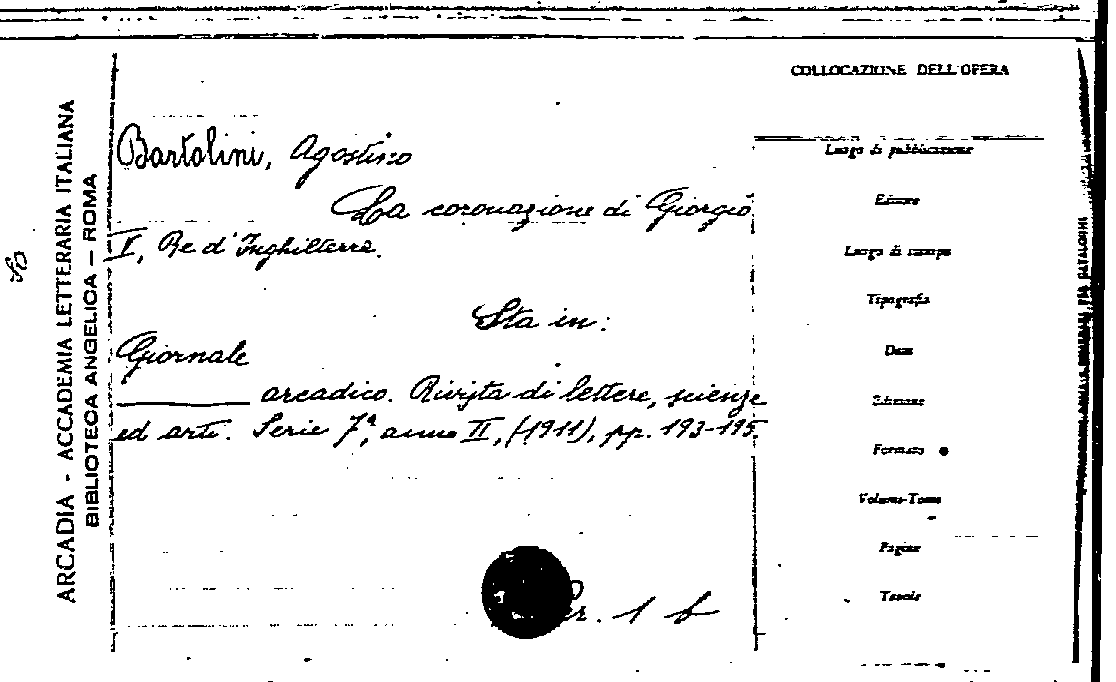 COLLOCAZIONE DELL'OPERA
Bartolini, Agostino
La coronazione di Giorgio
V, Re d'Inghilterra.
Sta in:
Giornale
arcadico. Rivista di lettere, scienze
ed arti. Serie 7ª, anno II, (1911), pp. 193-195.
Per. 1 b
ARCADIA - ACCADEMIA LETTERARIA ITALIANA
BIBLIOTECA ANGELICA — ROMA
Luogo di pubblicazione
Editore
Luogo di stampa
Tipografia
Data
Edizione
Formato
Volume-Tomo
Pagine
Tavole